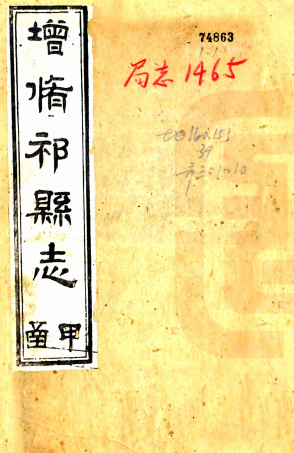 增脩祁縣志
甲
74863
局志1465
39